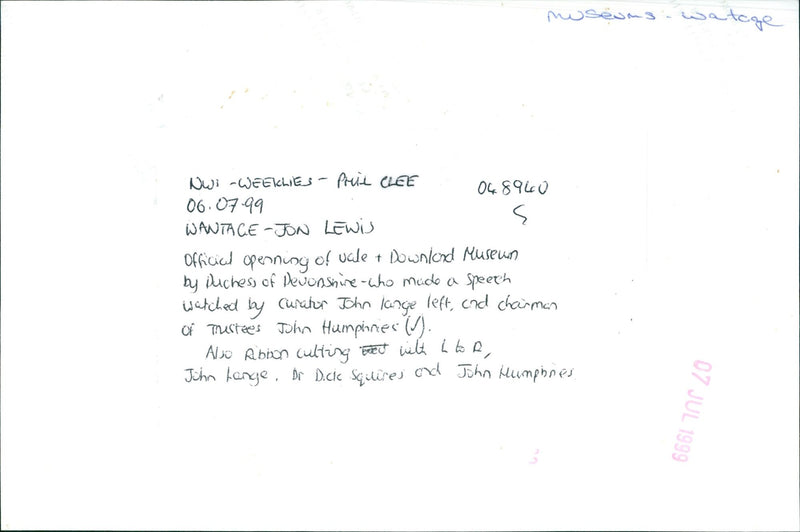 Museums - Watage
NWS - WEEKLIES - PHIL CLEE 048940
06.07.99 S
WANTAGE - JON LEWIS
Official openning of vale + Downlond Museum
by Duchess of Devonshire - who made a speech
watched by curator John Lange left, and chairman
of Trustees John Humphries (✓).
Also Ribbon cutting with L to R,
John Lange, Dr Dick Squires and John Humphries
07 JUL 1999